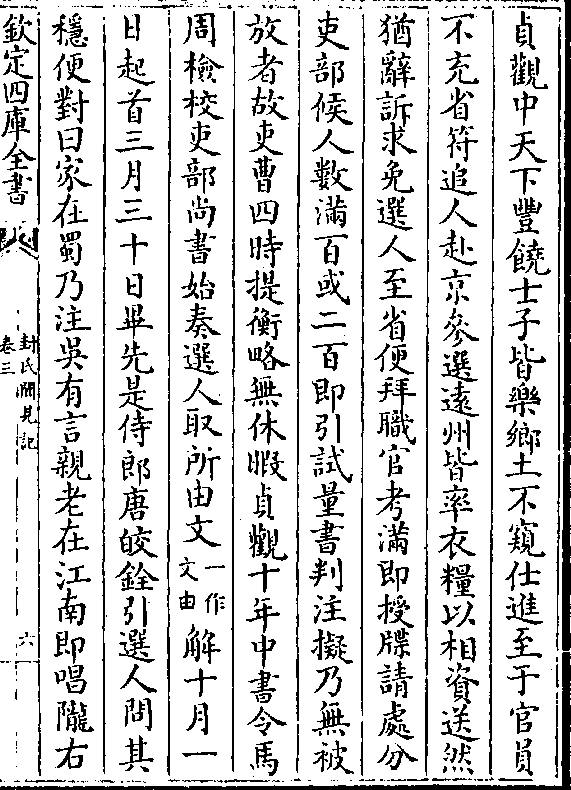 貞觀中天下豐饒士子皆樂鄉土不窺仕進至于官員
不充省符追人赴京參選遠州皆率衣糧以相資送然
猶辭訴求免選人至省便拜職官考滿即授牒請處分
吏部候人數滿百或二百即引試量書判注擬乃無被
放者故吏曹四時提衡略無休暇貞觀十年中書令馬
周檢校吏部尚書始奏選人取所由文一作文由解十月一
日起首三月三十日畢先是侍郎唐皎銓引選人問其
穩便對曰家在蜀乃注吳有言親老在江南即唱隴右
欽定四庫全書
封氏聞見記
卷三
六